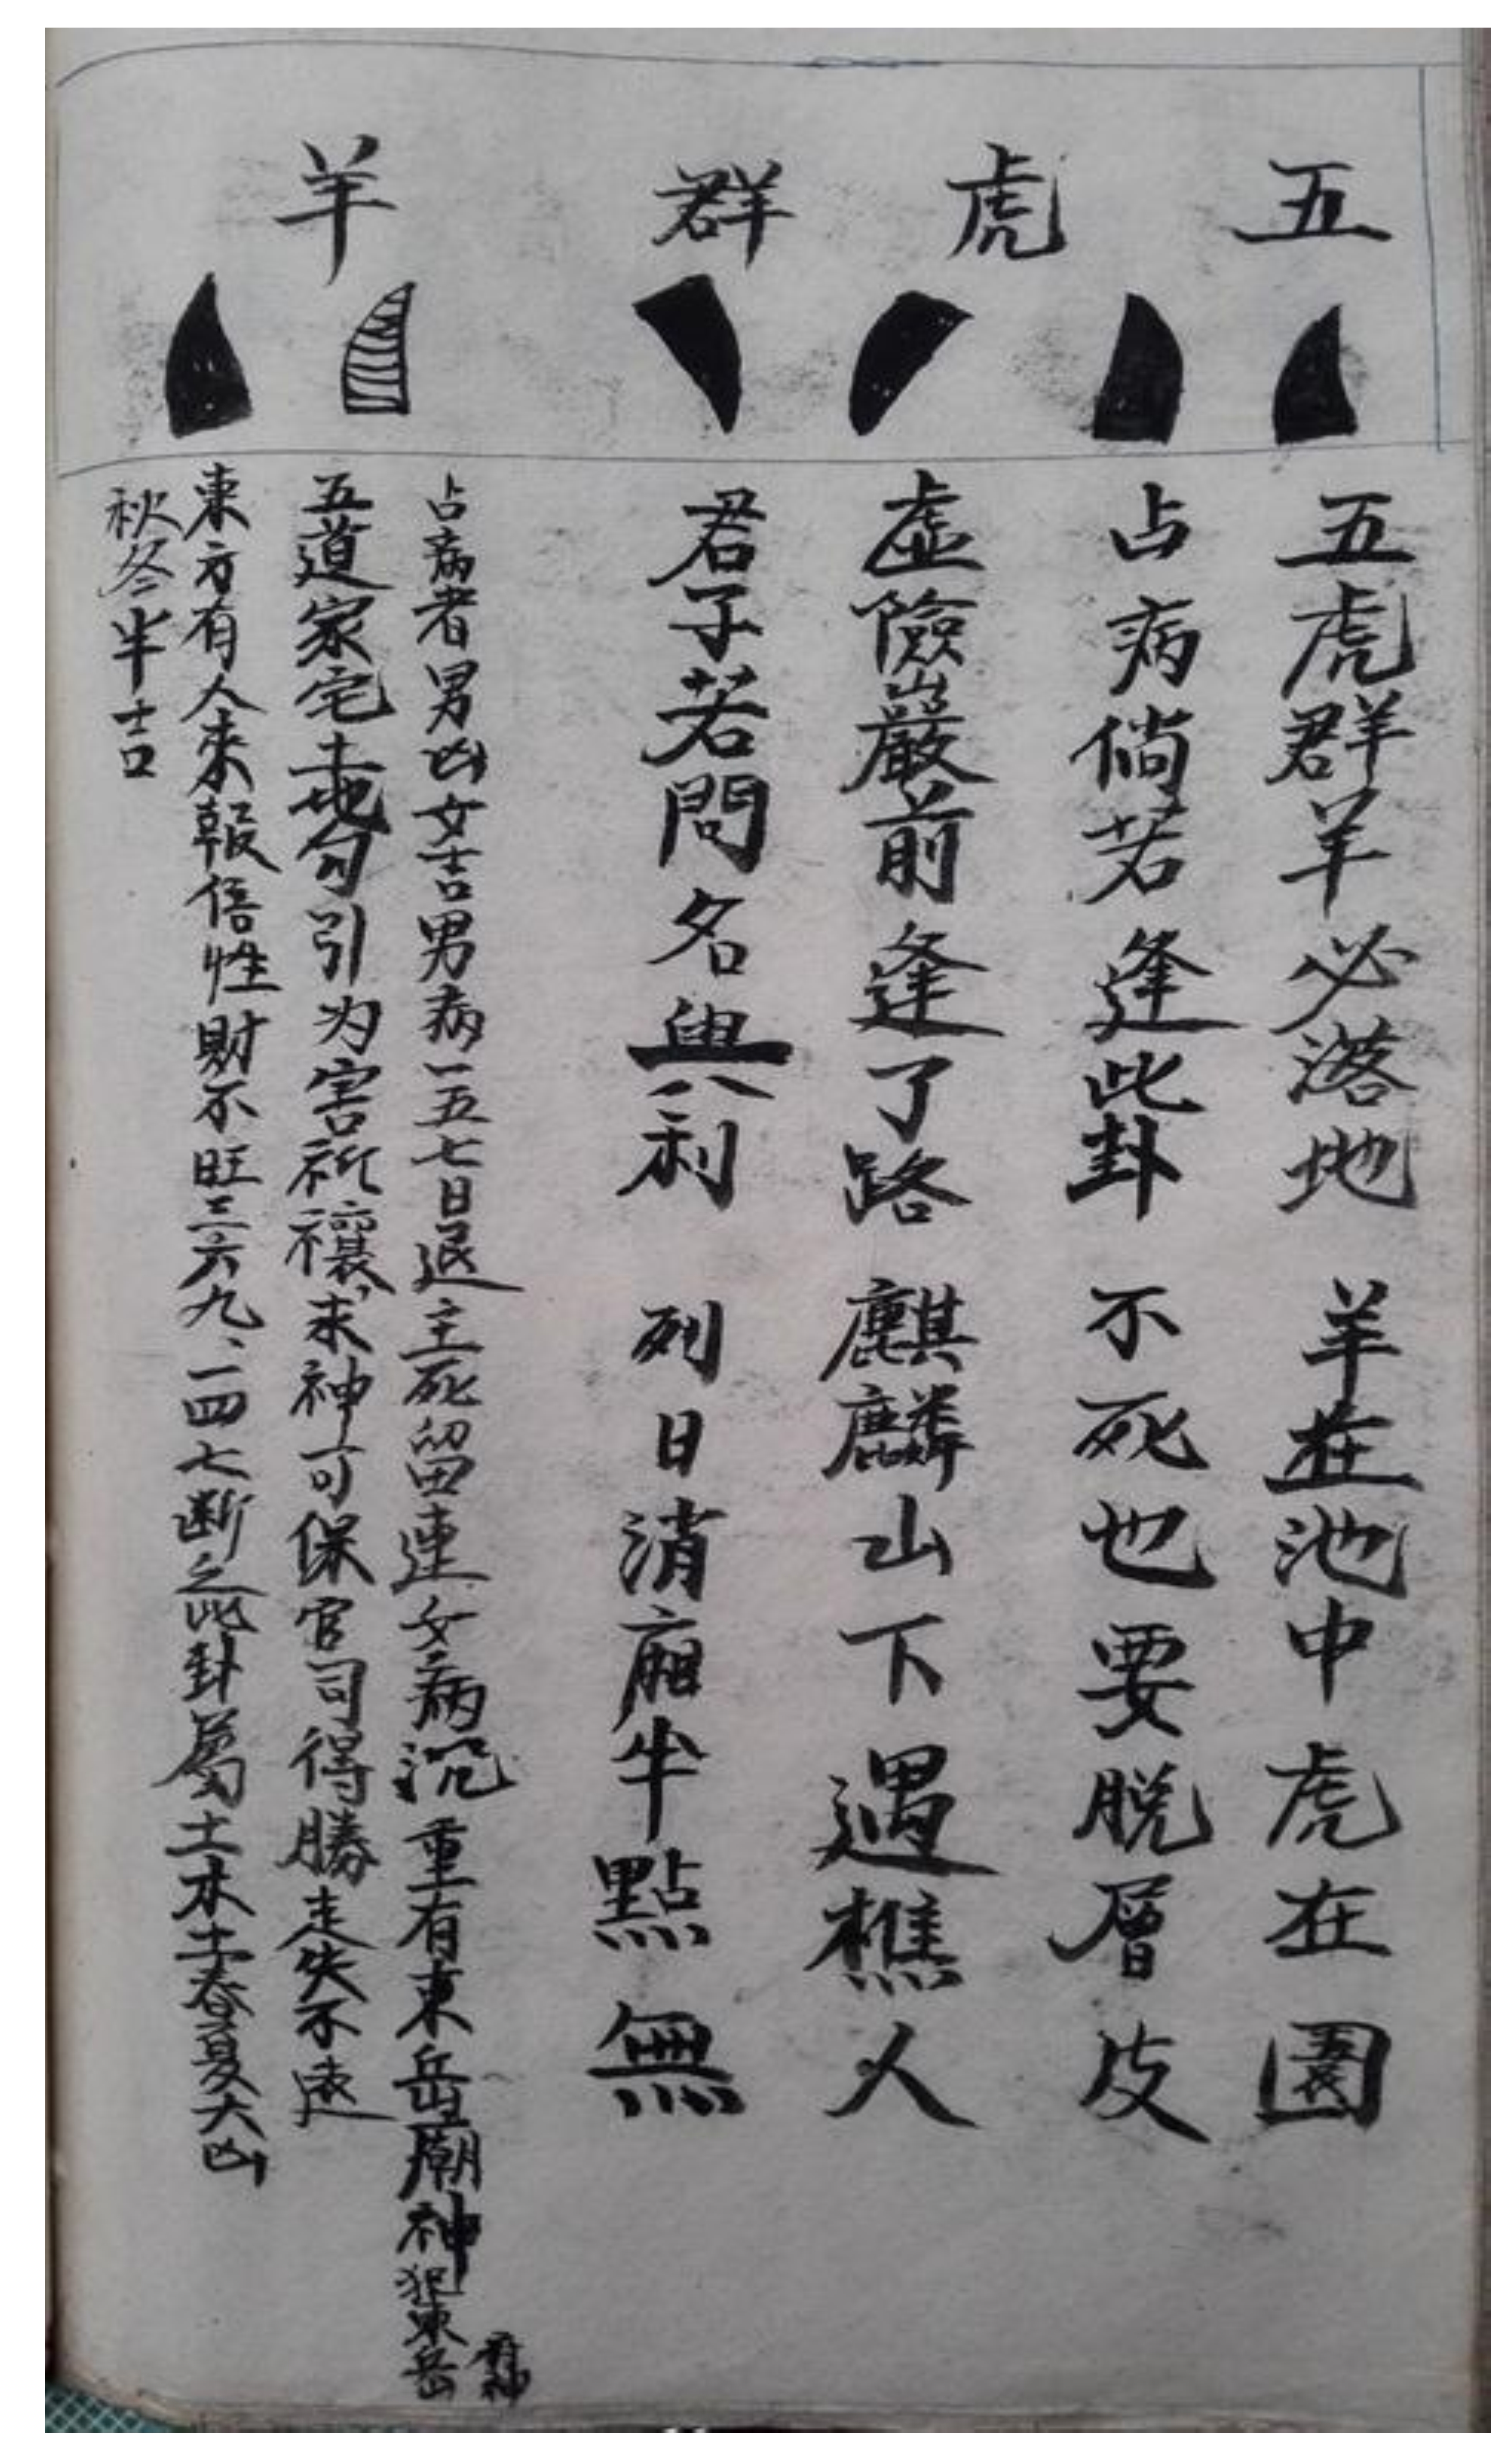 五虎群羊
五虎群羊必落地 羊在池中虎在園
占病倘若逢此卦 不死也要脱層皮
虛險巖前逢了路 麒麟山下遇樵人
君子若問名與利 列日消廂半點無
占病者男凶女吉男病一五七日退主死留連女病沉重有東岳廟神犯東岳
五道家宅土地勾引为害祈禳、求神可保官司得勝走失不遠
東方有人來報信性財不旺三六九、一四七断之此卦屬土木土春夏大凶
秋冬半吉